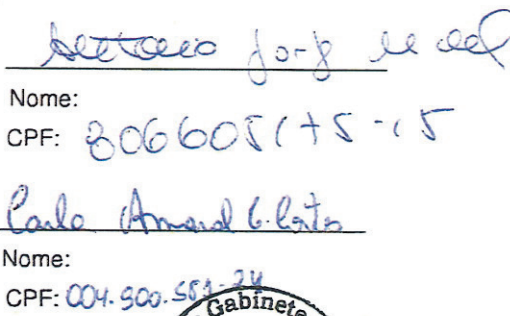 Jorge
Nome:
CPF: 806605175-15
Carlo Amaral G. Costa
Nome:
CPF: 004.900.581-24
Gabinete